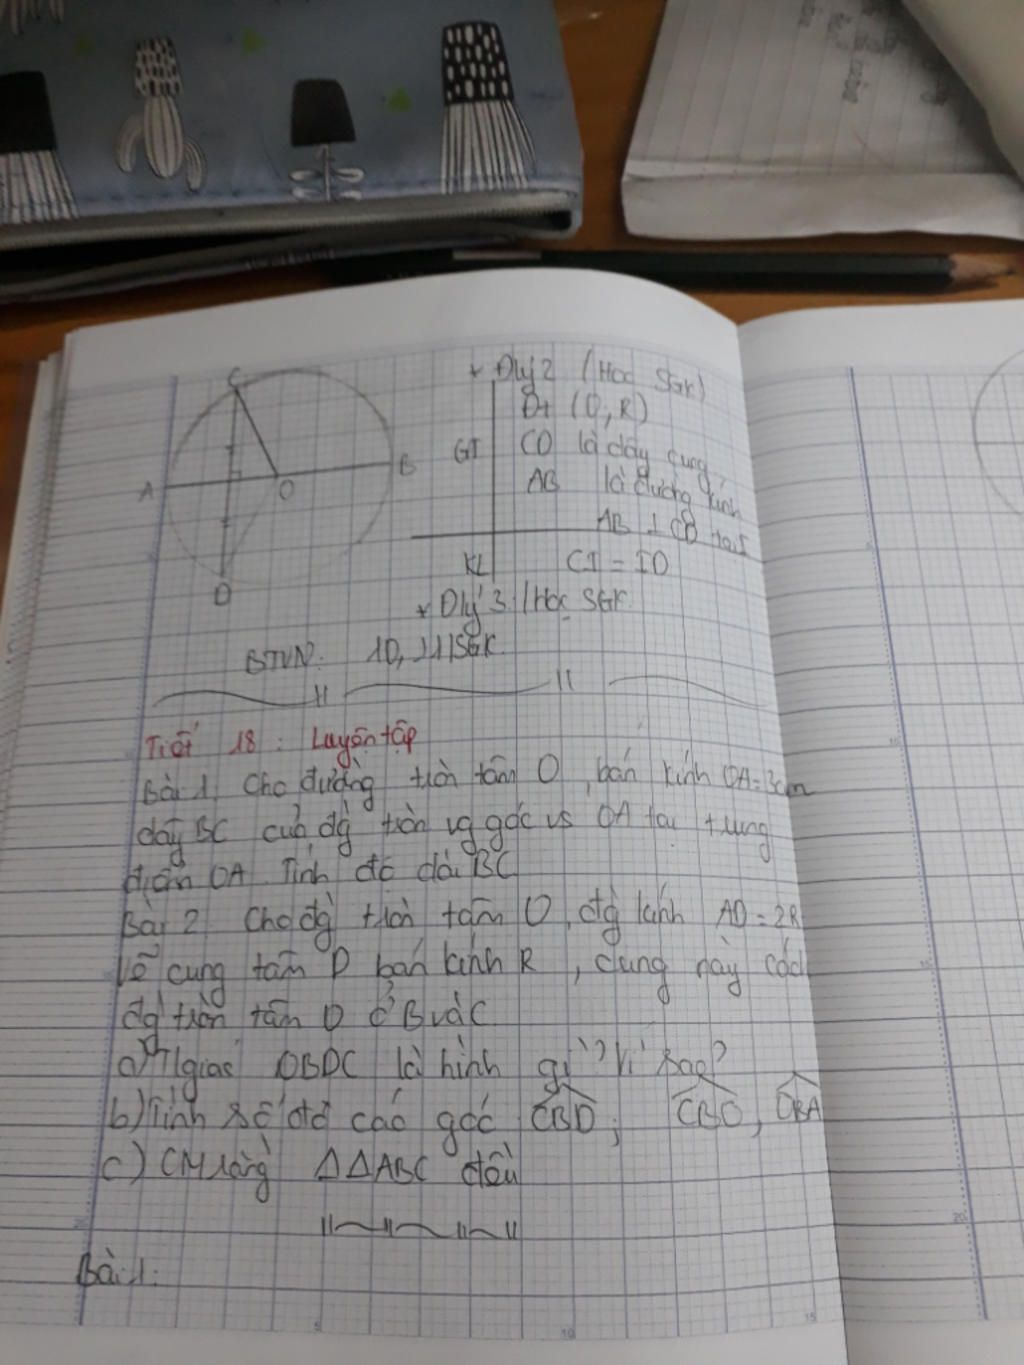 C
A
O
B
D
* Đlý 2 (Học SGK)
Đt (O, R)
GT
CD là dây cung
AB là đường kính
AB ⊥ CD tại I
KL
CI = ID
* Đlý 3 (Học SGK
BTVN: 10, 11 SGK
Tiết 18: Luyện tập
Bài 1. Cho đường tròn tâm O, bán kính OA=3cm
dây BC của đg tròn vg góc vs OA tại trung
điểm OA. Tính độ dài BC
Bài 2 Cho đg tròn tâm O, đg kính AD = 2R
Vẽ cung tâm D bán kính R, cung này cắt
đg tròn tâm O ở B và C
a) Tgiác OBDC là hình gì? Vì sao?
b) Tính số đo các góc CBD; CBO, OBA
c) CM rằng ΔΔABC đều
Bài 1:
5
10
15
20
20